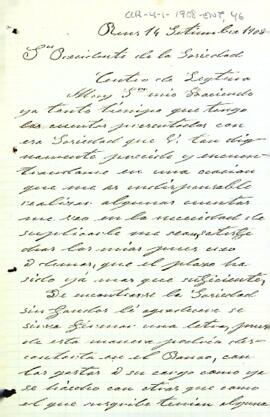 CLR-4-1-1908-ENT, 46
Reus 14 Setiembre 1908
Sr. Presidente de la Sociedad
Centro de Lectura
Muy Sr. mio: Haciendo
ya tanto tiempo que tengo
las cuentas presentadas con
esa Sociedad que V. tan dig
namente preside y encon
trandome en una ocasion
que me es indispensable
realizar algunas cuentas
me veo en la necesidad de
suplicarle me sean satisfe
chas las mias pues creo
que el plazo ha
sido ya mas que suficiente.
De encontrarse la Sociedad
sin fondos le agradecere se
sirva firmar una letra, pues
de esta manera podria des
contarla en el Banco, con
los gastos á su cargo como ya
se hacho con otras que como
el que suscribe tenian alguna